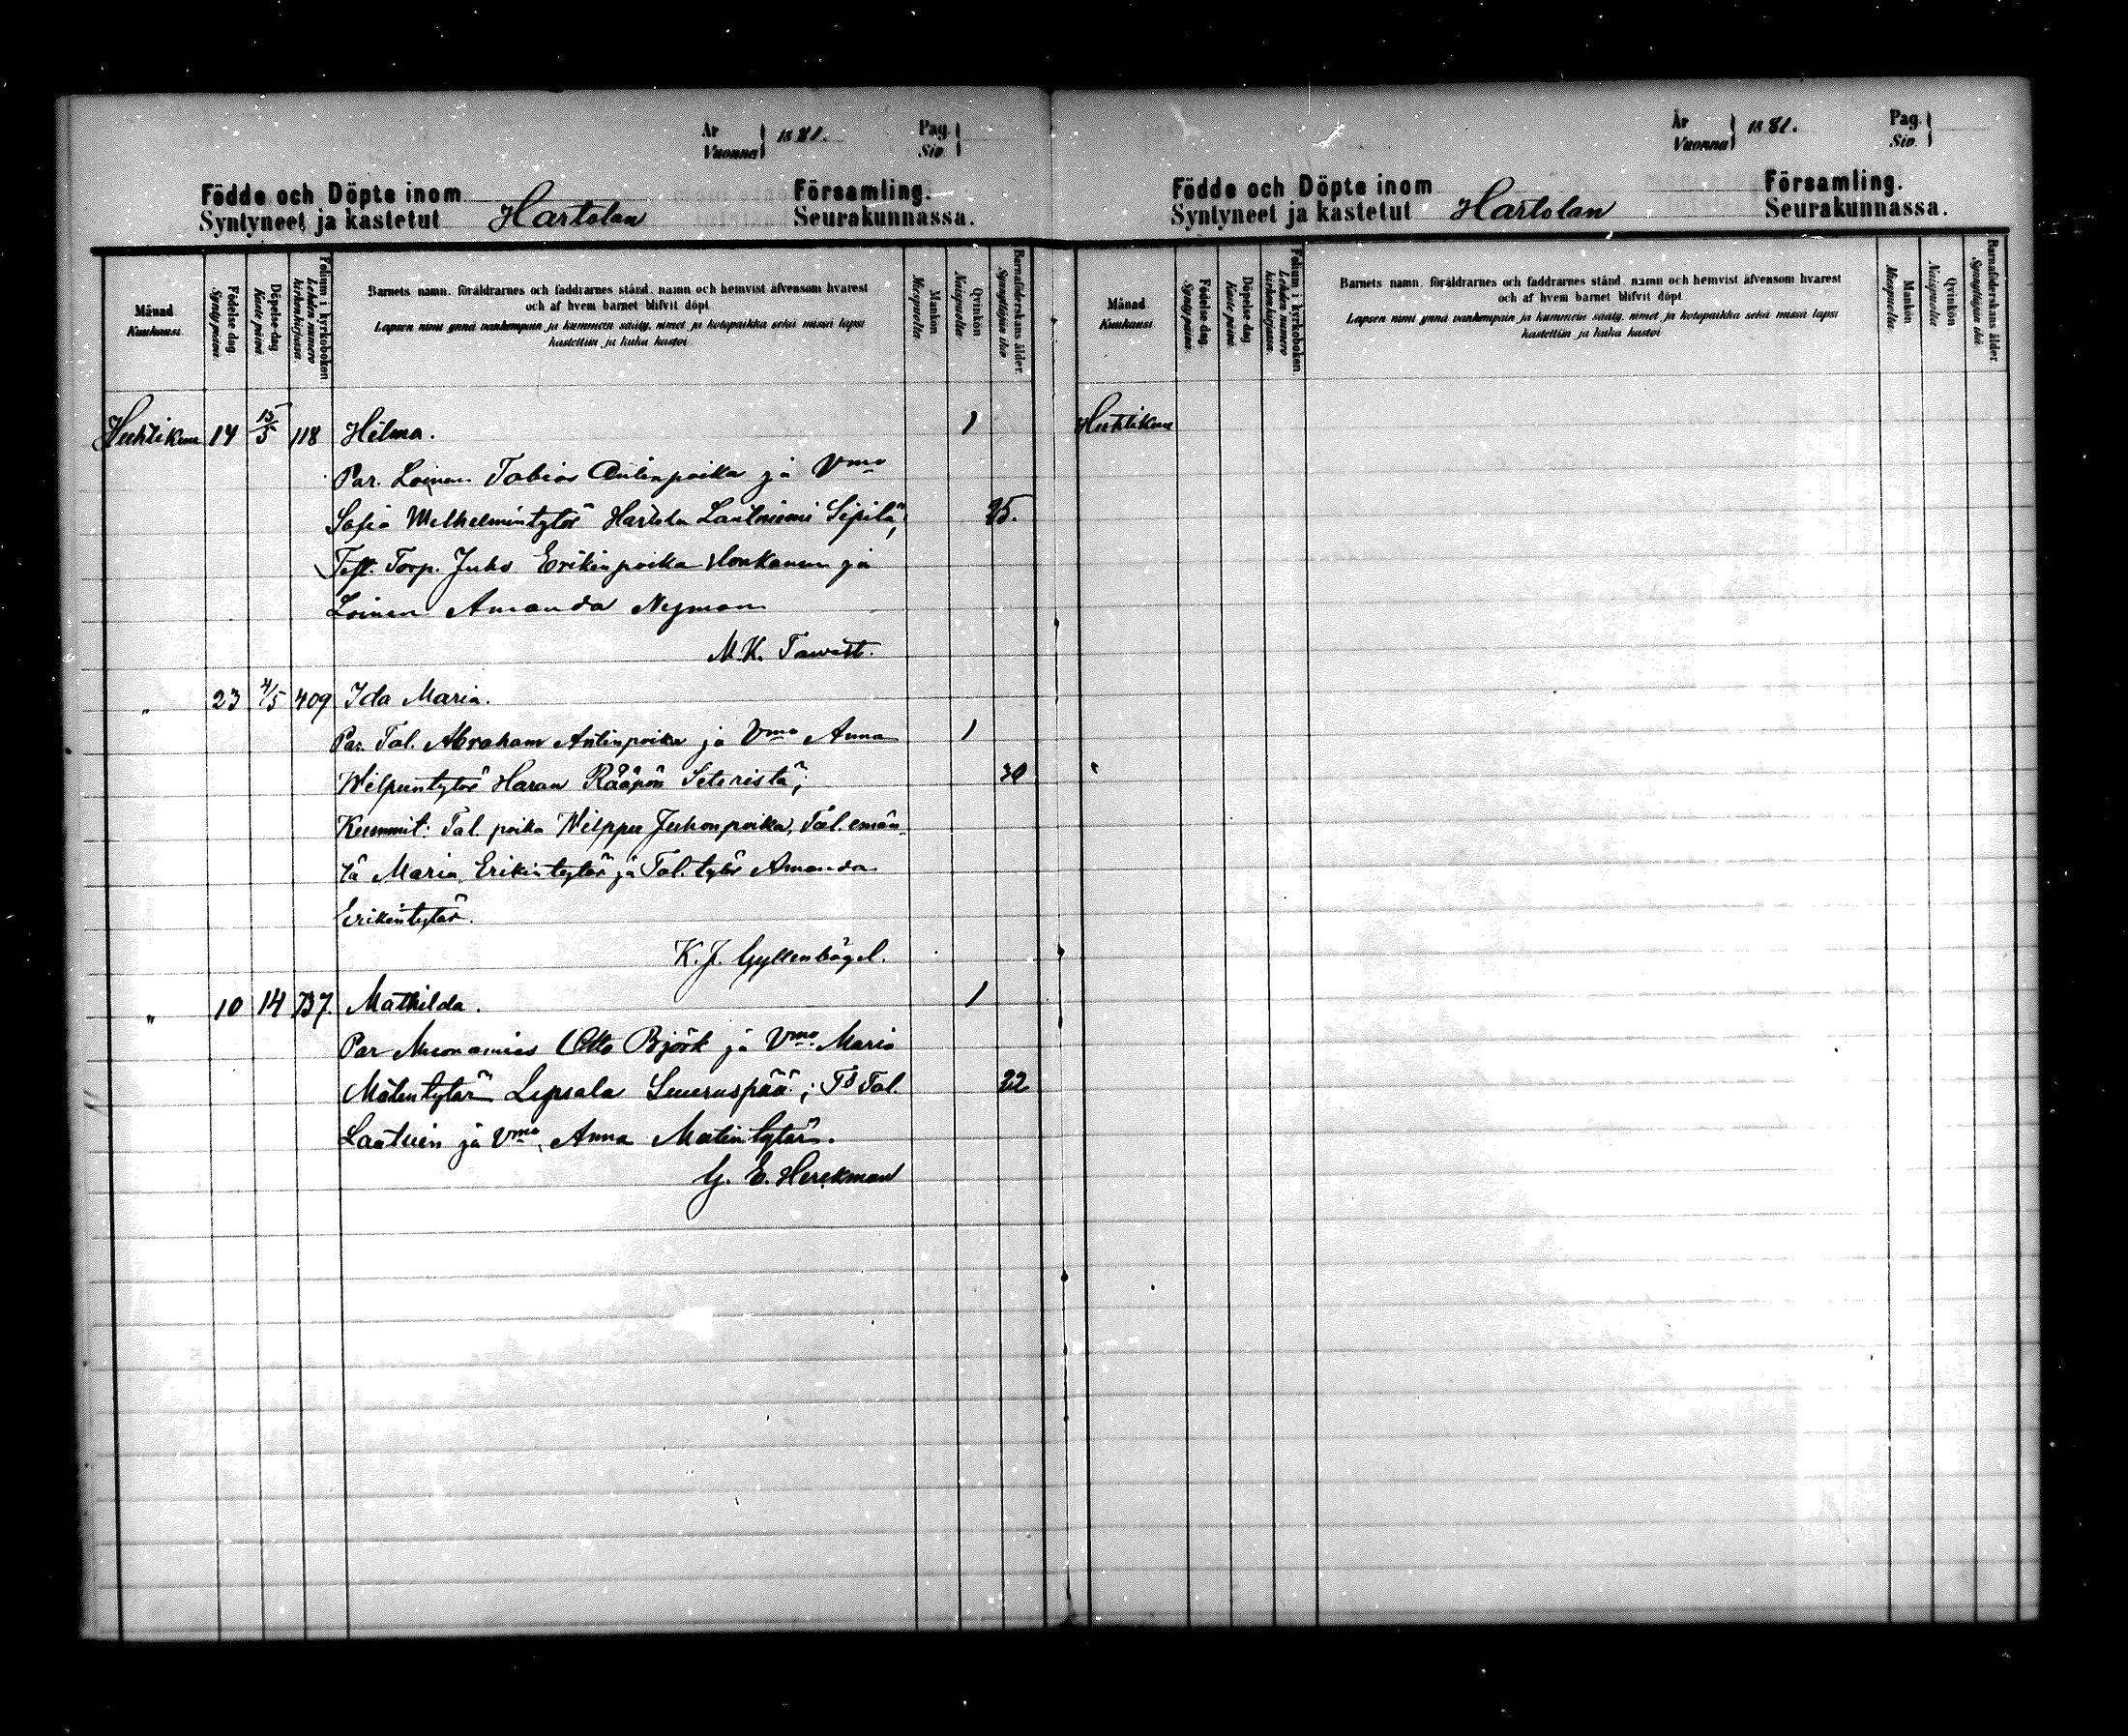 År
Vuonna } 1881.
Pag.
Siv. }
Födde och Döpte inom Församling.
Syntyneet ja kastetut Hartolan Seurakunnassa.
Månad
Kuukausi
Födelse dag.
Synty päivä.
Döpelse-dag
Kaste päivä
Folium i kyrkoboken
Lehden numero kirkonkirjassa.
Barnets namn, föräldrarnes och faddrarnes stånd, namn och hemvist äfvensom hvarest
och af hvem barnet blifvit döpt
Lapsen nimi ynnä vanhempain ja kummein sääty, nimet ja kotopaikka sekä missä lapsi
kastettiin ja kuka kastoi
Mankön
Miespuolta
Qvinkön
Naispuolta
Barnaföderskans ålder.
Synnyttäjän ikä
Huhtikuu 14 15/5 118 Hilma. 1
Par. Loinen Tobias Antinpoika ja Vmo
Sofia Wilhelmintytär Hartola Lautniemi Sipilä; 25.
Test. Torp. Juho Erikinpoika Honkanen ja
Loinen Amanda Nyman
M. K. Tawast.
" 23 4/5 409 Ida Maria.
Par. Tal. Abraham Antinpoika ja Vmo Anna 1
Wilpuntytär Haran Rååpön Seteristä; 30
Kummit: Tal. poika Wilppu Juhonpoika, Tal. emän-
tä Maria Erikintytär ja Tal. tytär Amanda
Erikintytär.
K. J. Gyllenbögel.
" 10 14 737. Mathilda. 1
Par Muonamies Otto Björk ja Vmo Maria
Matintytär Lepsala ; Td Tal. 22
ja Vmo Anna Matintytär.
G. E. Herckman
År
Vuonna } 1881.
Pag.
Siv. }
Födde och Döpte inom Församling.
Syntyneet ja kastetut Hartolan Seurakunnassa.
Månad
Kuukausi
Födelse dag.
Synty päivä.
Döpelse-dag
Kaste päivä
Folium i kyrkoboken.
Lehden numero kirkonkirjassa.
Barnets namn, föräldrarnes och faddrarnes stånd, namn och hemvist äfvensom hvarest
och af hvem barnet blifvit döpt
Lapsen nimi ynnä vanhempain ja kummein sääty, nimet ja kotopaikka sekä missä lapsi
kastettiin ja kuka kastoi
Mankön
Miespuolta
Qvinkön
Naispuolta
Barnaföderskans ålder
Synnyttäjän ikä.
Huhtikuu